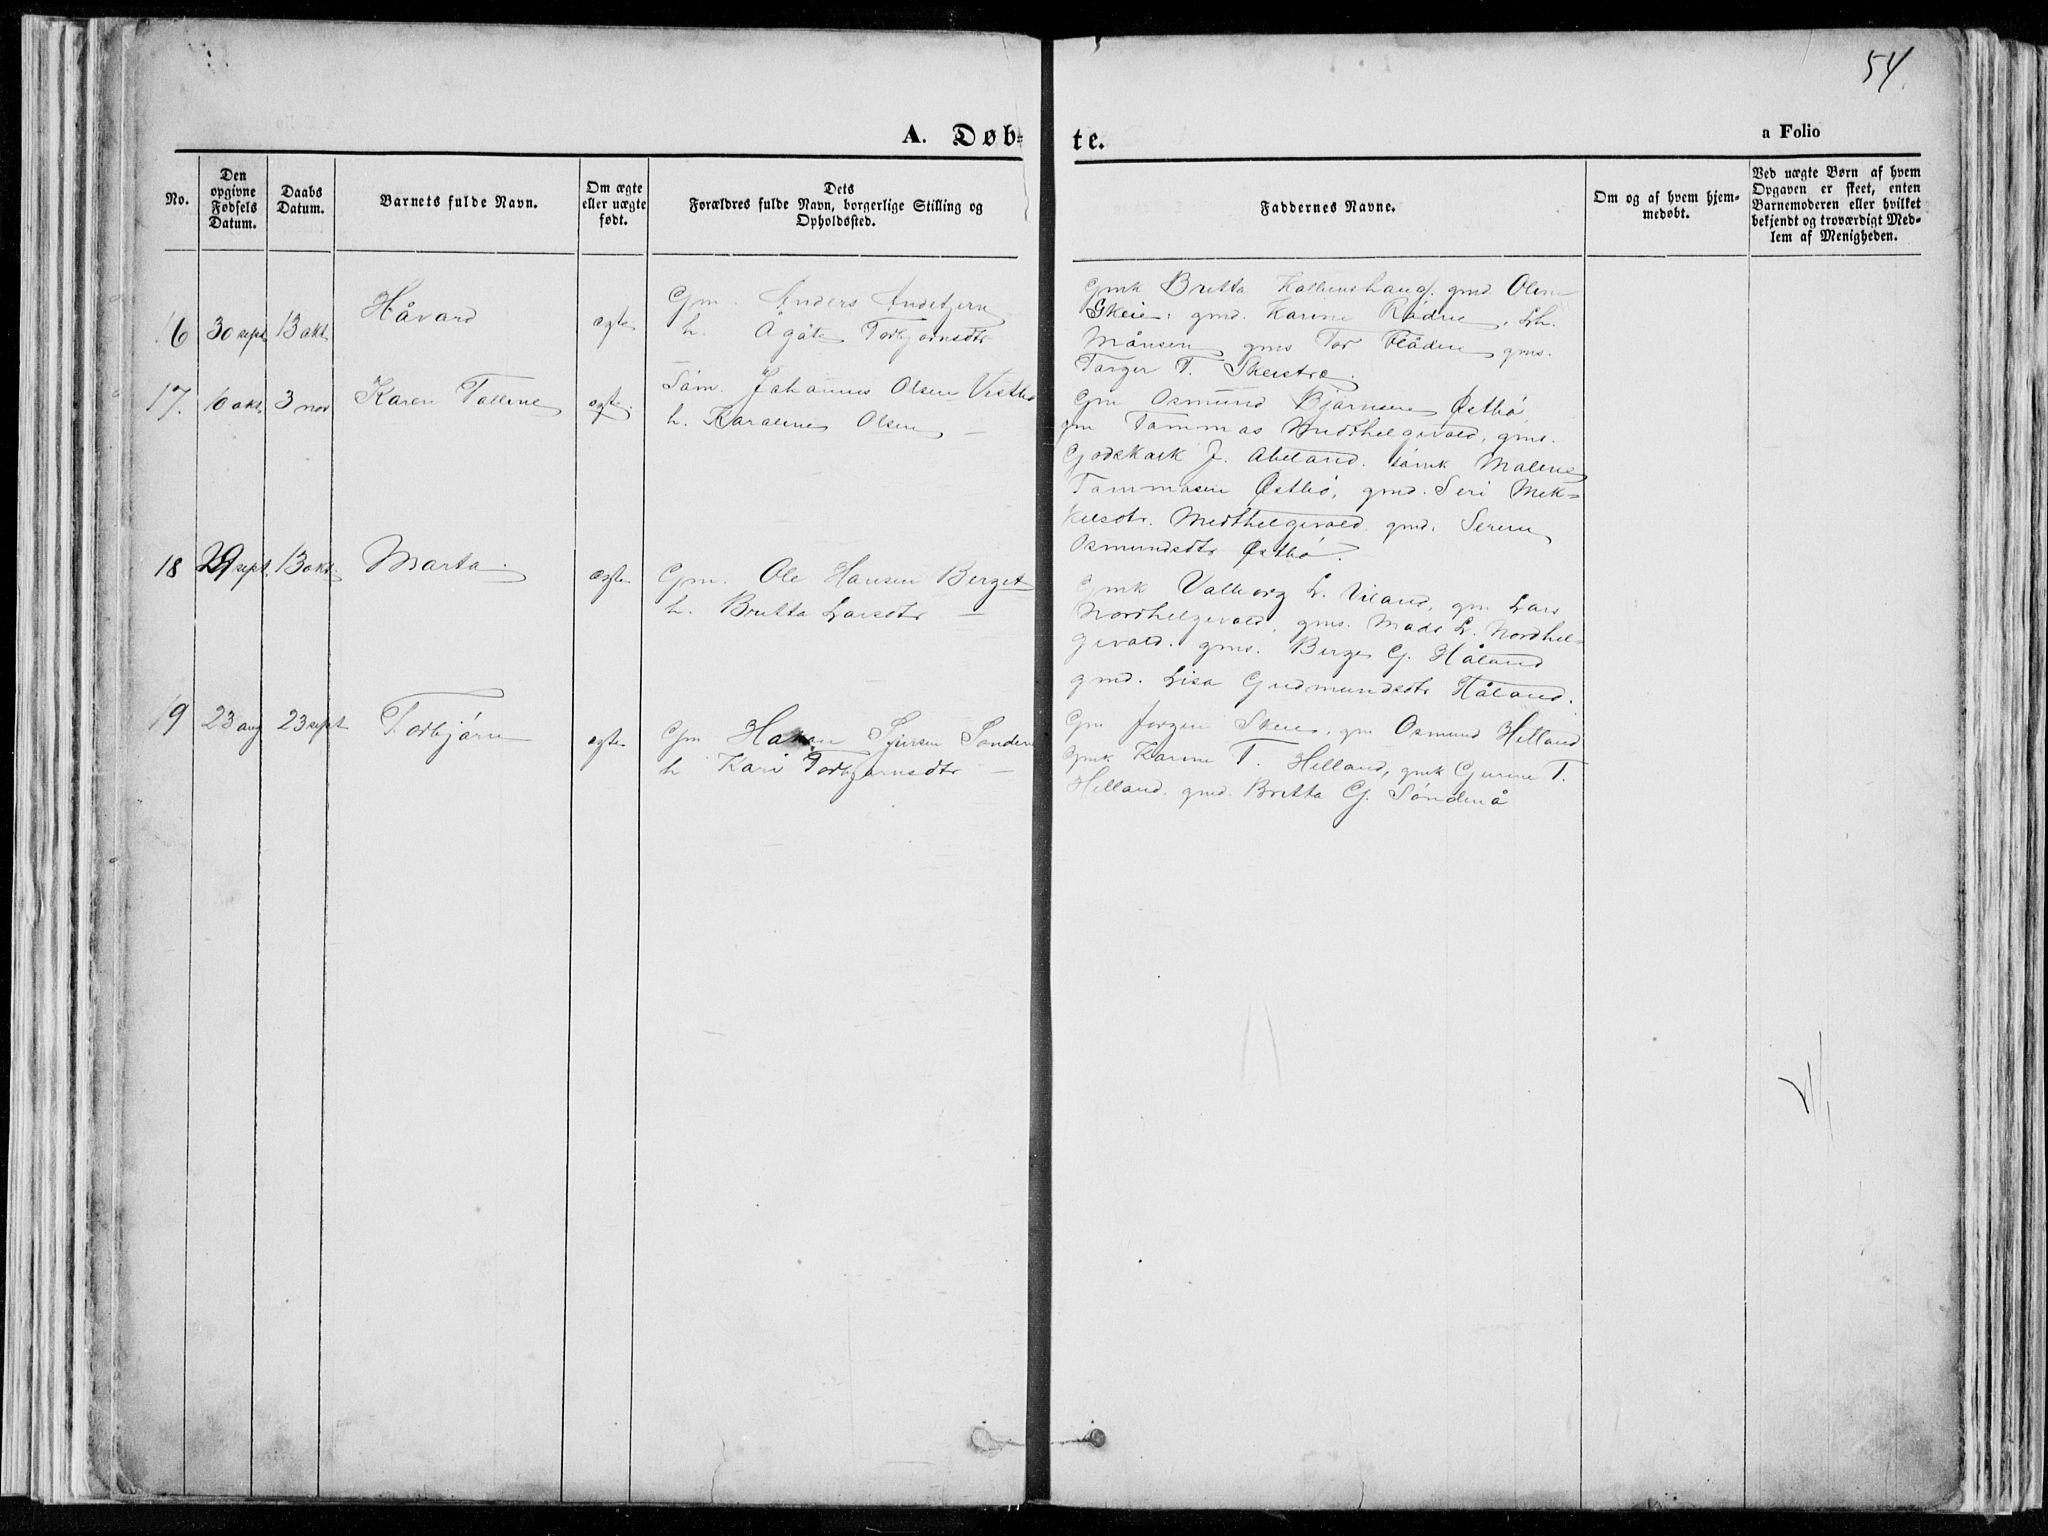 54
A. Døb-
te.
a Folio
No.
Den opgivne Fødsels Datum.
Daabs Datum.
Barnets fulde Navn.
Om ægte eller uægte født.
Dets Forældres fulde Navn, borgerlige Stilling og Opholdssted.
Faddernes Navne.
Om og af hvem hjemmedøbt.
Ved uægte Børn af hvem Opgaven er skeet, enten Barnemoderen eller hvilket bekjendt og troværdigt Medlem af Menigheden.
16 30 sept 13 okt Håvard ægte
Gm. Anders
h. Ågåta Torbjørnsdtr
Gmk Britta gmd. Oline
Skeie, gmd. Karine
Månsen gms Tor Flåden gms.
Targer T. Skeistre
17. 10 okt. 3 nov Karen Talline ægte
Sâm. Johannes Olsen
h. Karaline Olsen —
Gm Osmund Bjørnsen Østbø
gm Tammas Midthelgevold, gms.
Godskalk J. Abeland. sâmk Maline
Tammasen Østbø, gmd. Seri Mik-
kelsdtr. Midthelgevold. gmd. Serine
Osmundsdtr Østbø.
18 29 sept. 13 okt. Marta. ægte
Gm. Ole Hansen Berget
h. Britta Larsdtr —
Gmk Valborg L. Viland, gm Lars
Nordhelgevold, gms. Mads L. Nordhel-
gevold. gms. Birge G. Håland
gmd. Lisa Gudmundsdtr Håland.
19 23 aug 23 sept Torbjørn ægte
Gm Håkon Sjursen
h Kari Torbjørnsdtr —
Gm Jørgen Skeie, gm Osmund Helland
gmk Karine T. Helland, gmk Gurine T.
Helland. gmd. Britta G. Søndenå